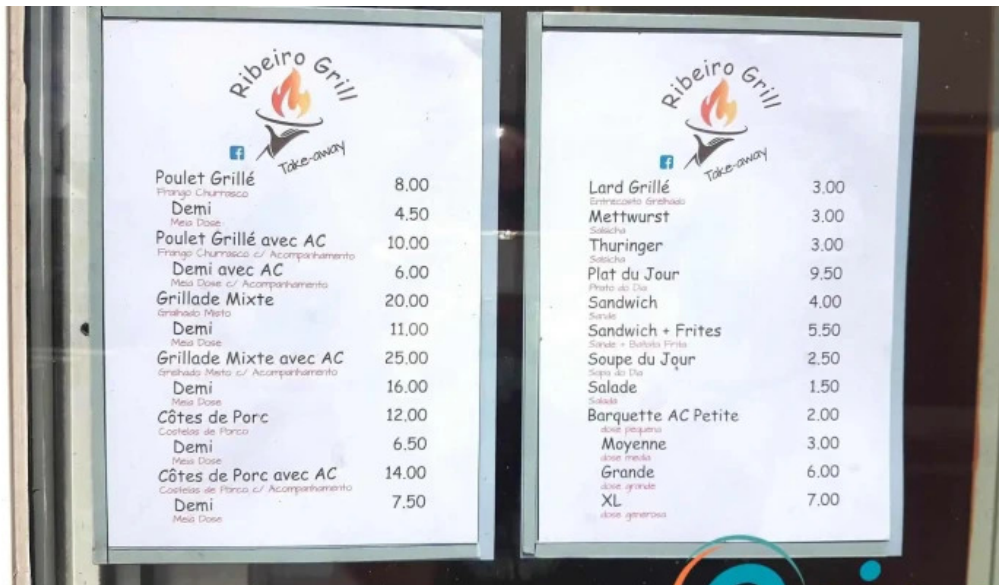 Ribeiro Grill
Take-away
Poulet Grillé 8,00
Frango Churrasco
Demi 4,50
Meia Dose
Poulet Grillé avec AC 10,00
Frango Churrasco c/ Acompanhamento
Demi avec AC 6,00
Meia Dose c/ Acompanhamento
Grillade Mixte 20.00
Grelhado Misto
Demi 11,00
Meia Dose
Grillade Mixte avec AC 25.00
Grelhado Misto c/ Acompanhamento
Demi 16.00
Meia Dose
Côtes de Porc 12,00
Costelas de Porco
Demi 6.50
Meia Dose
Côtes de Porc avec AC 14.00
Costelas de Porco c/ Acompanhamento
Demi 7.50
Meia Dose
Ribeiro Grill
Take-away
Lard Grillé 3,00
Entrecosto Grelhado
Mettwurst 3.00
Salsicha
Thuringer 3.00
Salsicha
Plat du Jour 9.50
Prato do Dia
Sandwich 4.00
Sande
Sandwich + Frites 5.50
Sande + Batata Frita
Soupe du Jour 2.50
Sopa do Dia
Salade 1.50
Salada
Barquette AC Petite 2.00
dose pequena
Moyenne 3.00
dose media
Grande 6.00
dose grande
XL 7.00
dose generosa